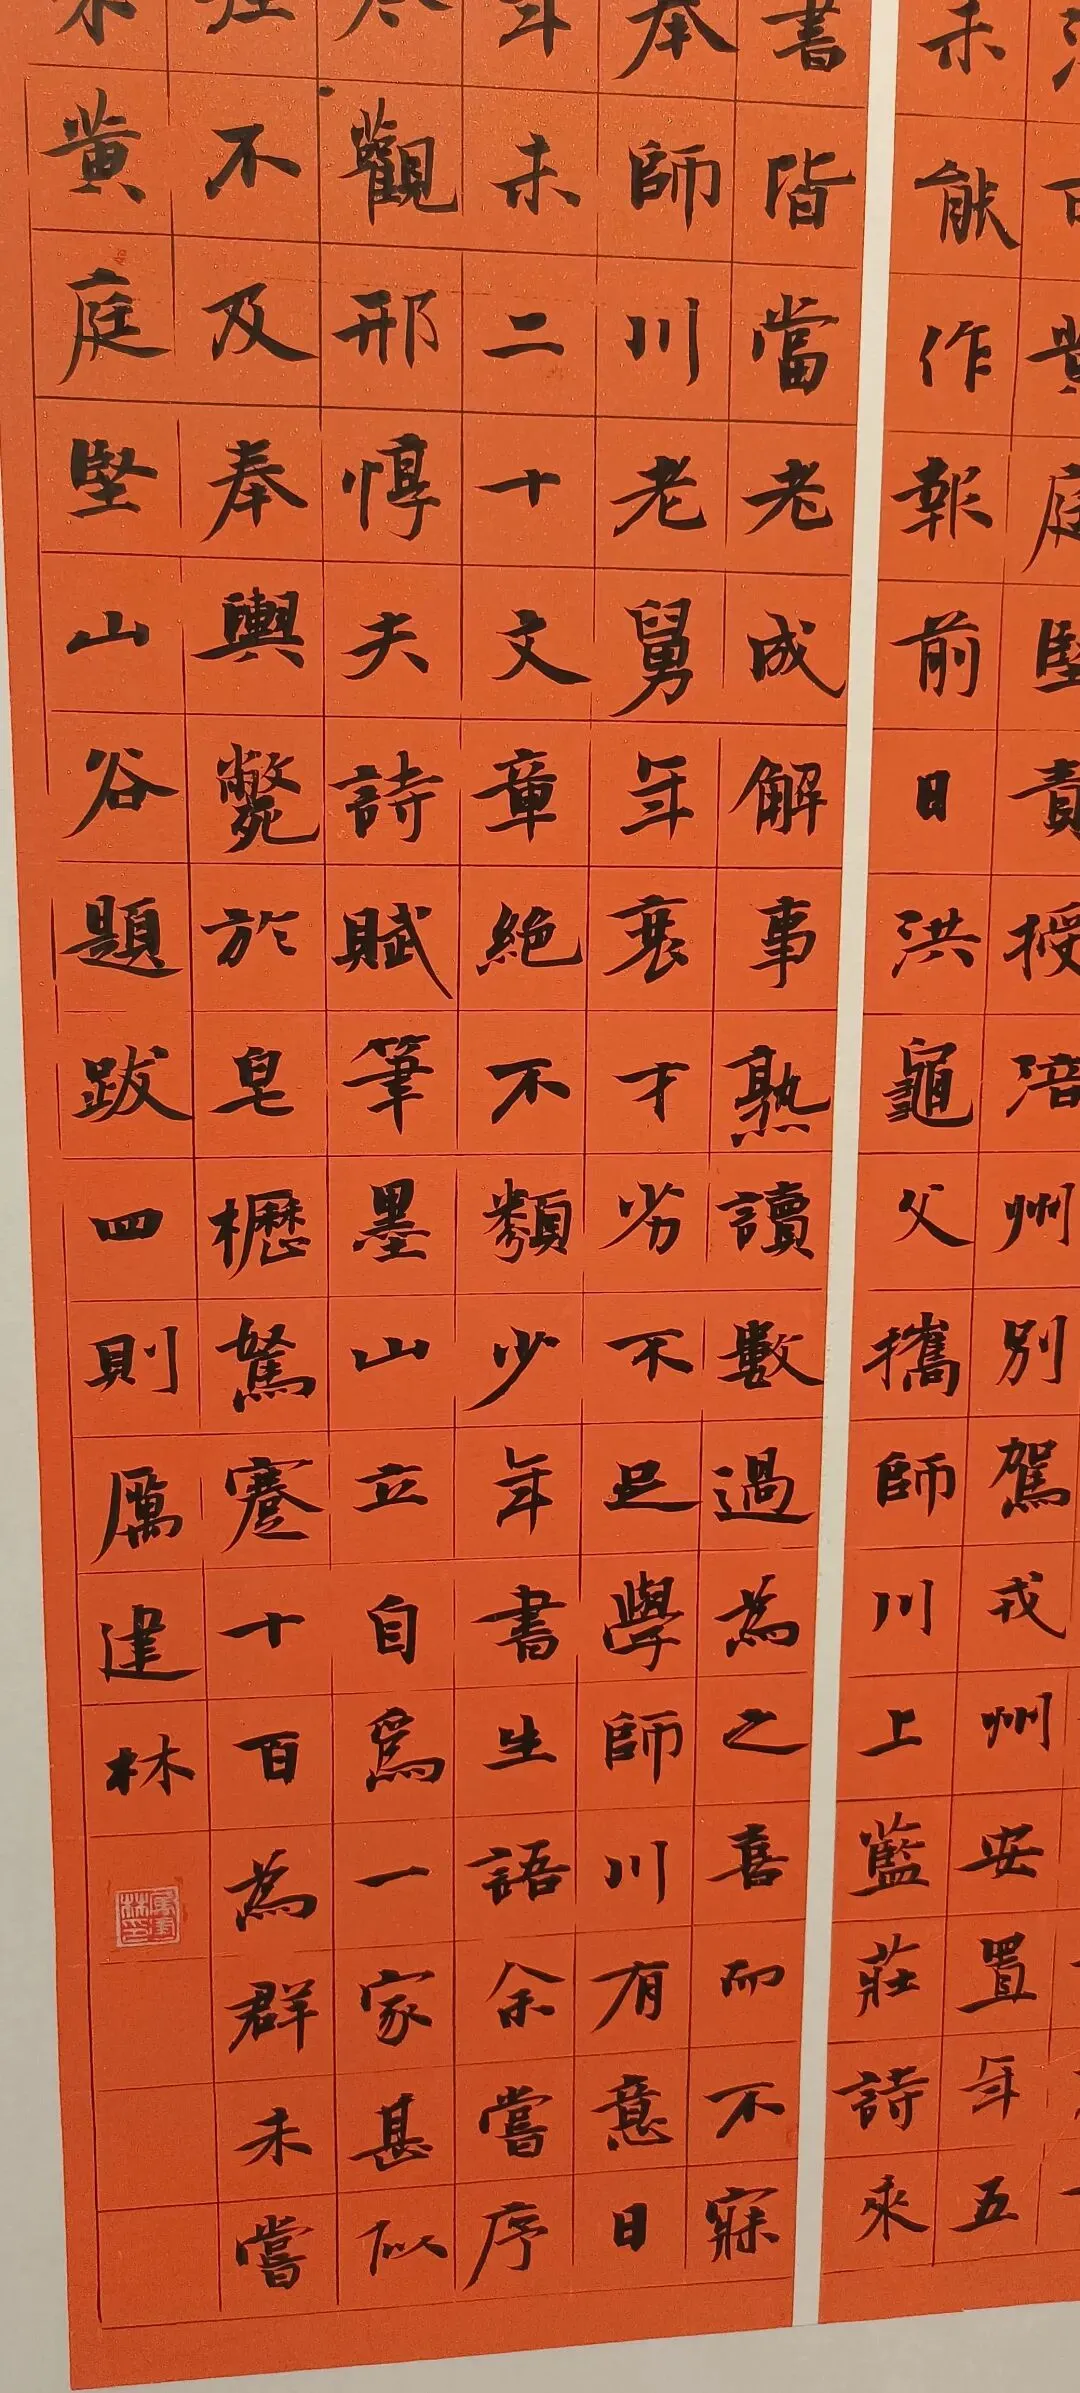 黃庭堅責授涪州別駕戎州安置年五
未能作報前日洪龜父攜師川上藍莊詩來
書皆當老成解事熟讀數過為之喜而不寐
本師川老舅年衰才劣不足學師川有意日
年未二十文章絕不類少年書生語余嘗序
觀邢惇夫詩賦筆墨山立自為一家甚似
不及奉輿斃於皂櫪駑蹇十百為群未嘗
黃庭堅山谷題跋四則厲建林